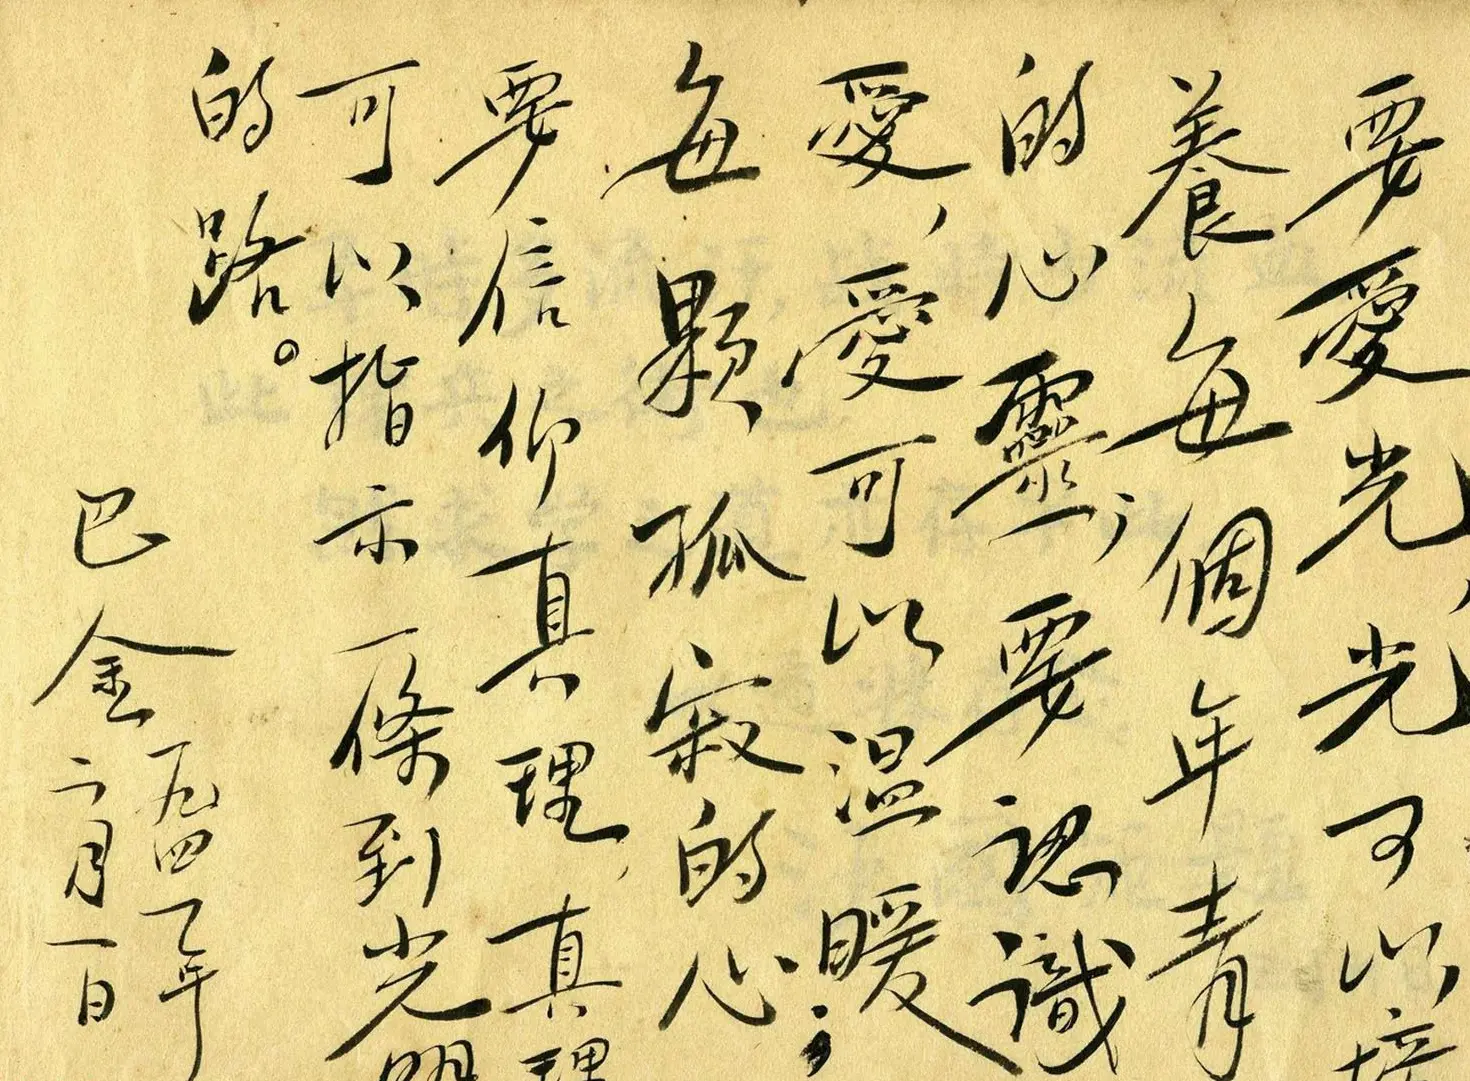 要愛光，光可以培
養每個年青
的心靈；要認識
愛，愛可以溫暖
每顆孤寂的心；
要信仰真理，真理
可以指示一條到光明
的路。
巴金 一九四一年
二月一日